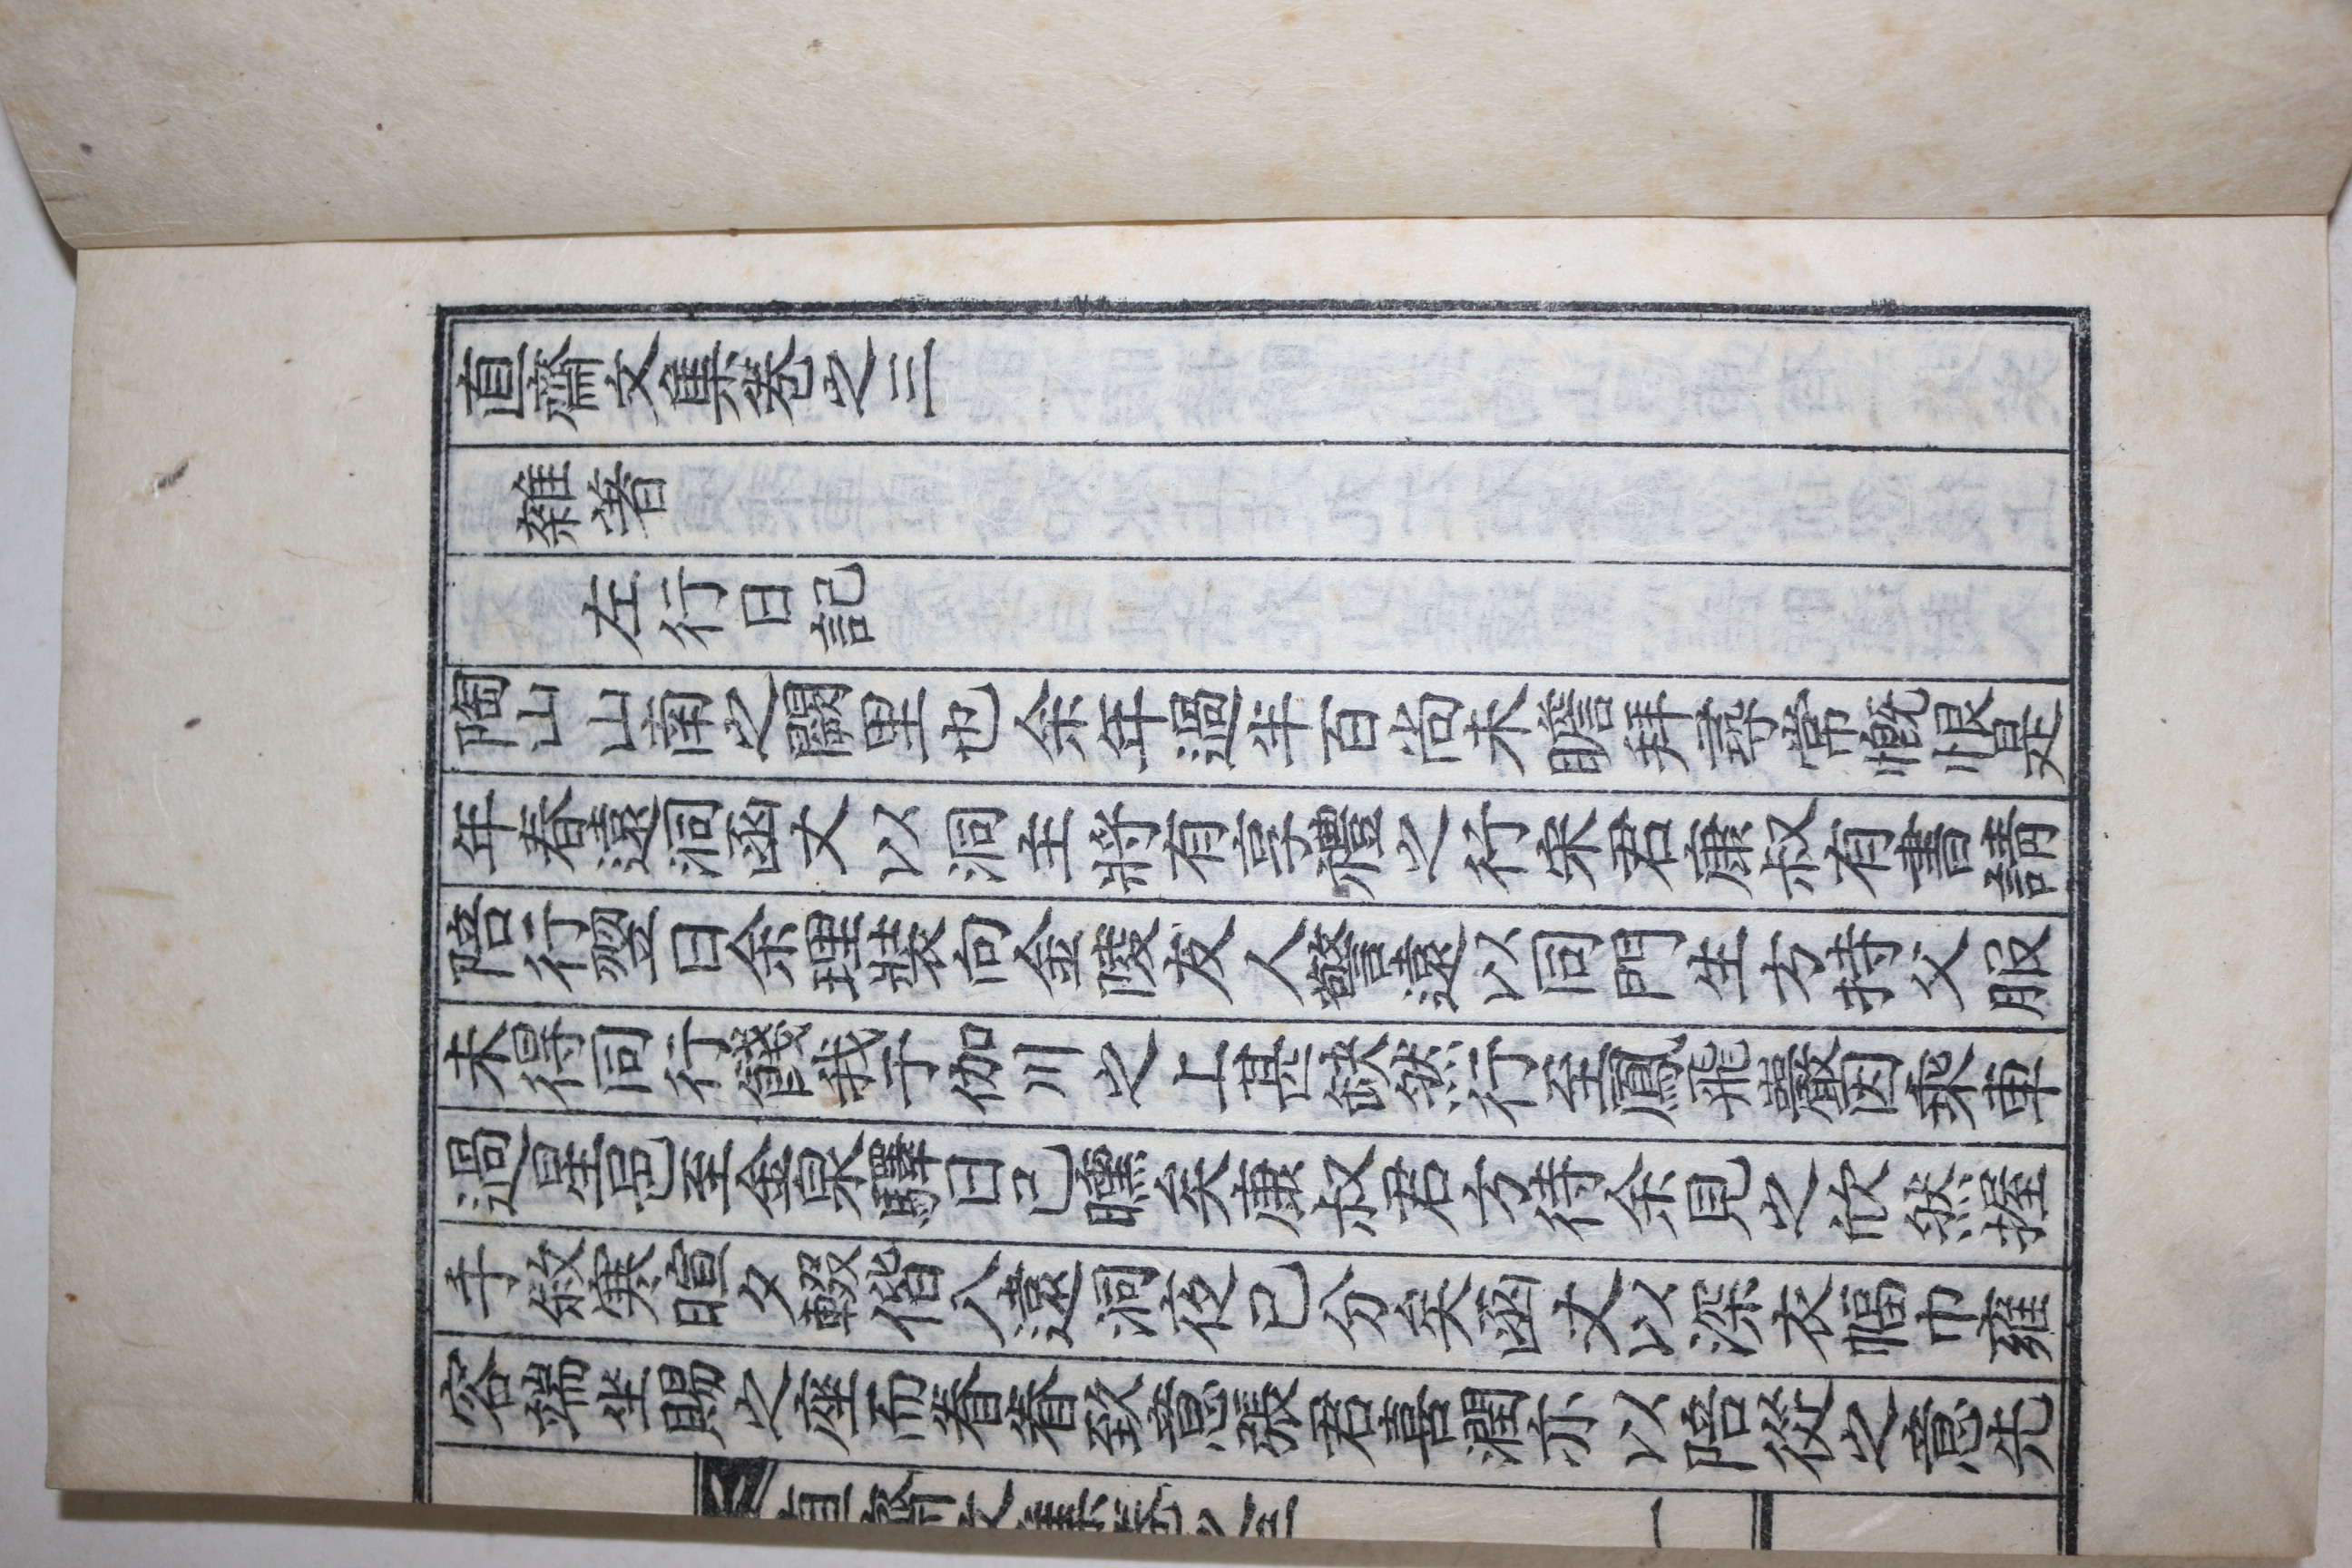 直齋文集卷之三
雜著
左行日記
陶山山南之闕里也余年過半百尚未瞻拜尋常慨恨是
年春遠洞函丈以洞主將有享禮之行宋君康叔有書請
陪行翌日余理裝向金陵友人警遠以同門生方持父服
未得同行餞我于伽川之上甚缺然行至鳳飛巖因乘車
過星邑至金泉驛日已曛矣康叔君方待余見之欣然握
手敘寒暄夕輟偕入遠洞夜已分矣函丈以深衣幅巾雍
容端坐賜之座而眷眷致意張君喜潤亦以陪從之意先
直齋文集卷之三
一